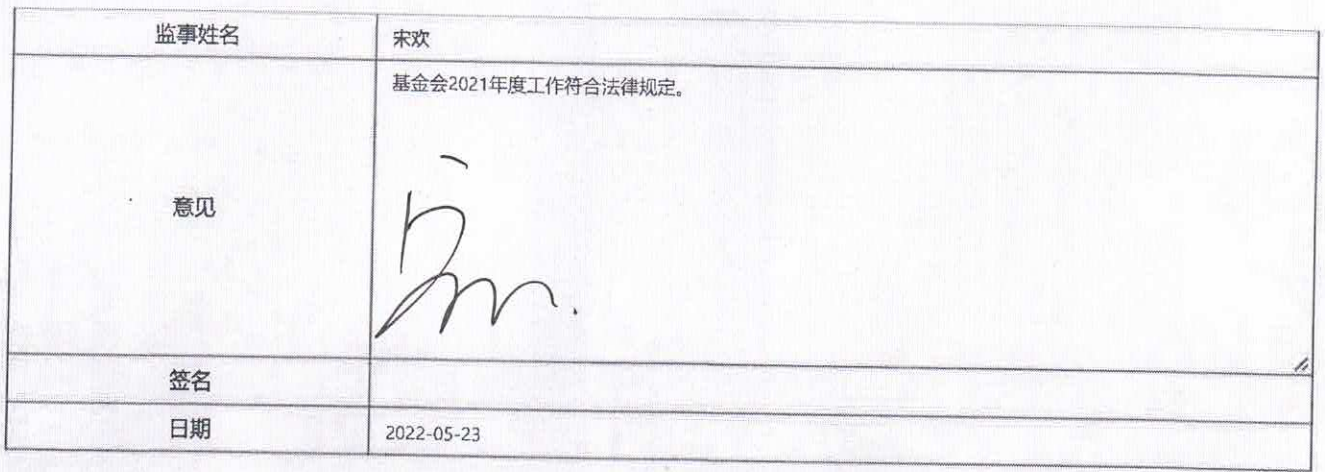 监事姓名 宋欢
基金会2021年度工作符合法律规定。
意见
签名
日期 2022-05-23